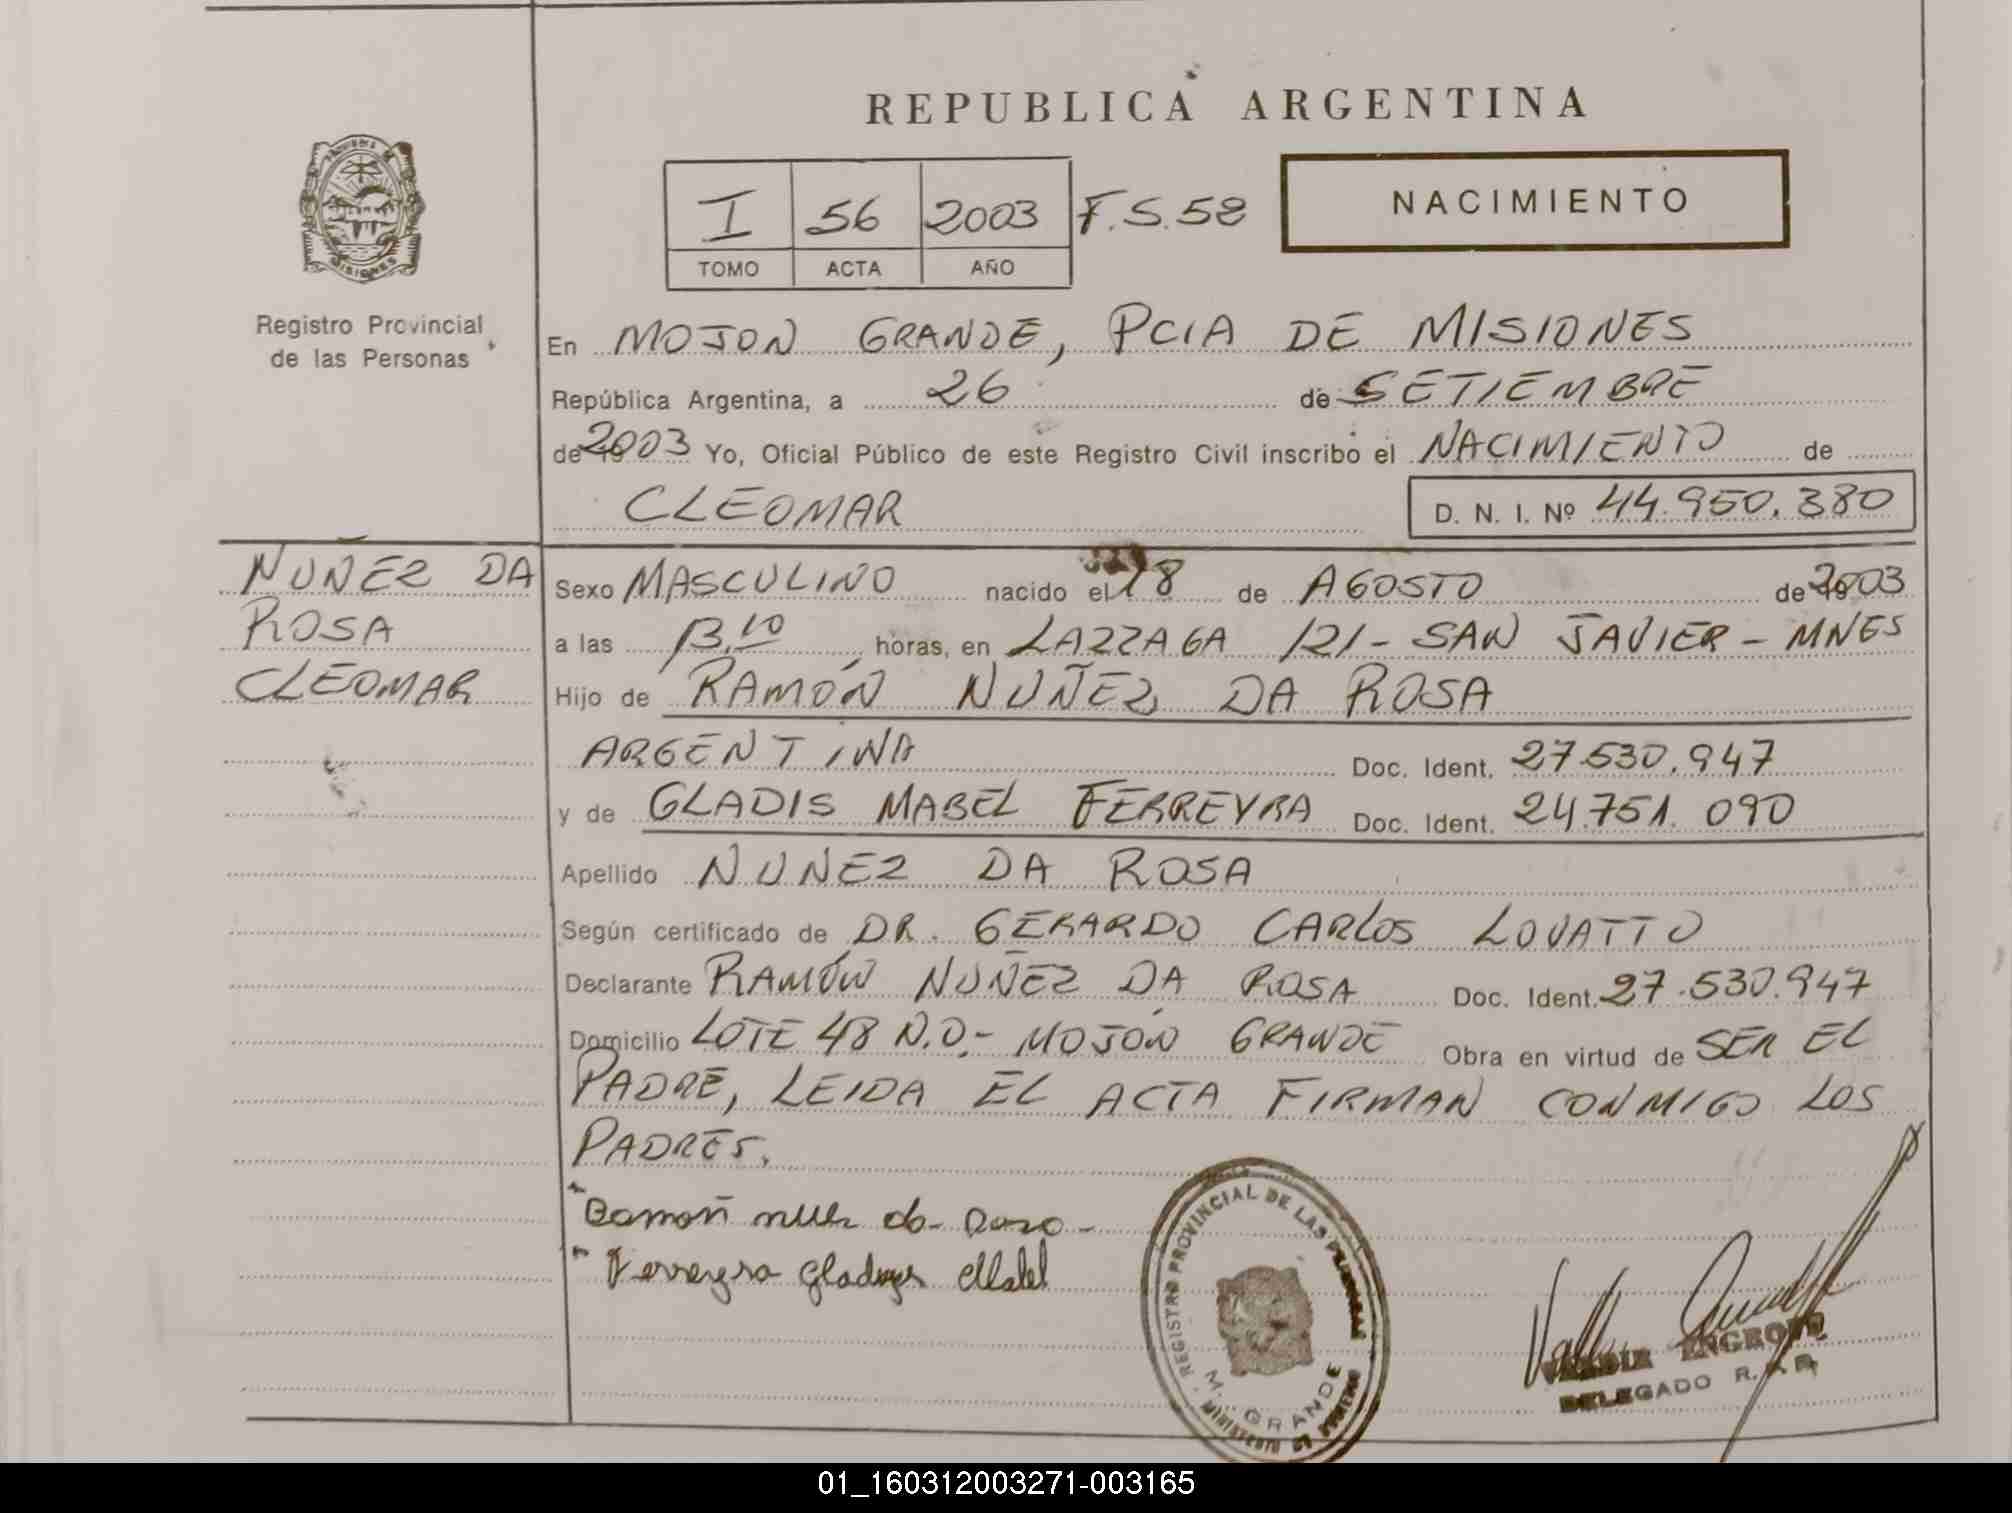 REPUBLICA ARGENTINA
PROVINCIA DE
MISIONES
Registro Provincial
de las Personas
I 56 2003 F.S.58
TOMO ACTA AÑO
NACIMIENTO
En MOJON GRANDE, PCIA DE MISIONES
República Argentina, a 26 de SETIEMBRE
de 2003 Yo, Oficial Público de este Registro Civil inscribo el NACIMIENTO de
CLEOMAR D. N. I. Nº 44.950.380
NUÑEZ DA
ROSA
CLEOMAR
Sexo MASCULINO nacido el 18 de AGOSTO de 2003
a las 13.10 horas, en LAZZAGA 121 - SAN JAVIER - MNES
Hijo de RAMÓN NUÑEZ DA ROSA
ARGENTINA Doc. Ident. 27.530.947
y de GLADIS MABEL FERREYRA Doc. Ident. 24.751.090
Apellido NUNEZ DA ROSA
Según certificado de DR. GERARDO CARLOS LOVATTO
Declarante RAMÓN NUÑEZ DA ROSA Doc. Ident. 27.530.947
Domicilio LOTE 48 N.O.- MOJÓN GRANDE Obra en virtud de SER EL
PADRE, LEIDA EL ACTA FIRMAN CONMIGO LOS
PADRES.
Ferreyra Gladys Mabel
REGISTRO PROVINCIAL DE LAS PERSONAS
M. GRANDE
MINISTERIO DE GOBIERNO
DELEGADO R.P.P.
01_160312003271-003165